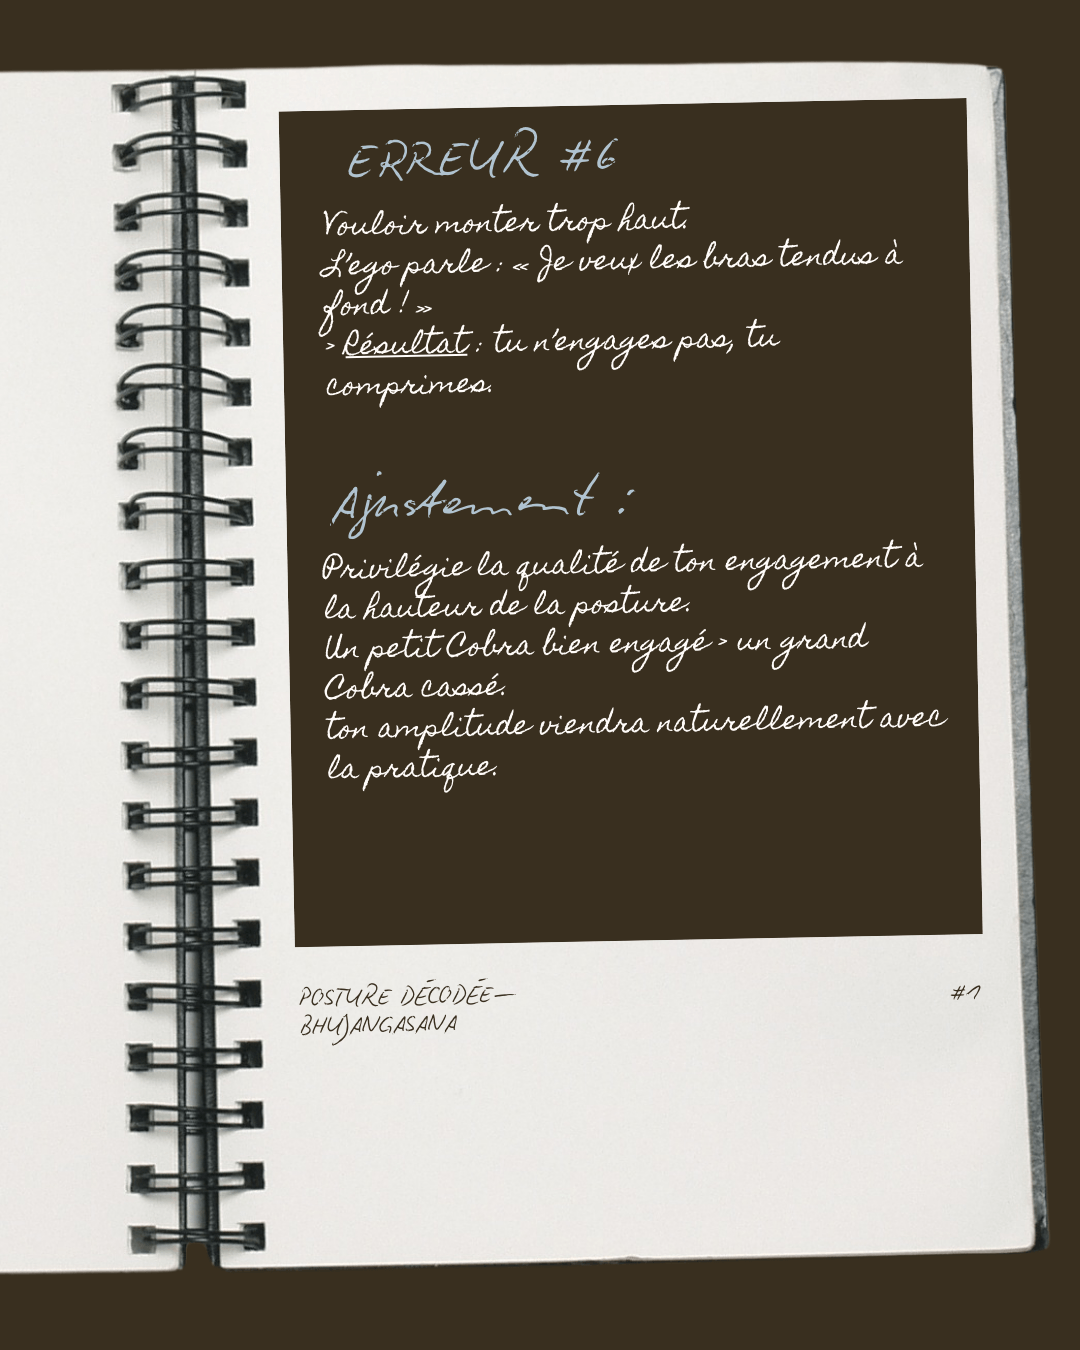 ERREUR #6
Vouloir monter trop haut.
L'ego parle : « Je veux les bras tendus à
fond ! »
> Résultat : tu n'engages pas, tu
comprimes.
Ajustement :
Privilégie la qualité de ton engagement à
la hauteur de la posture.
Un petit Cobra bien engagé > un grand
Cobra cassé.
ton amplitude viendra naturellement avec
la pratique.
POSTURE DÉCODÉE—
BHUJANGASANA
#1